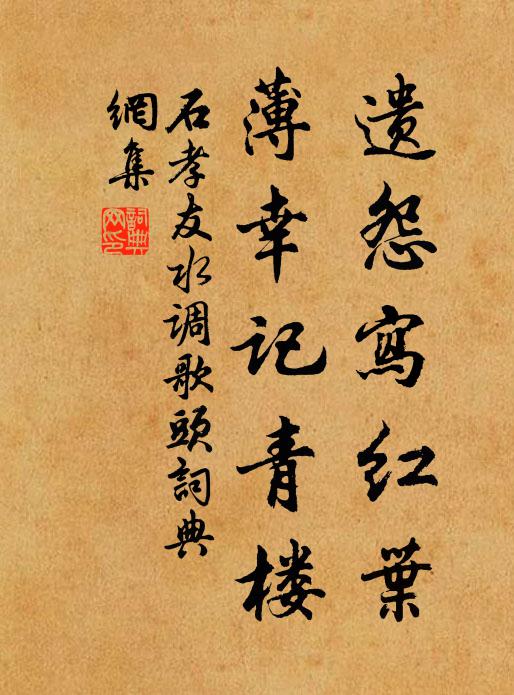 遗怨寫红葉
薄幸记青楼
石孝友水调歌頭詞典
網集
詞典
网印